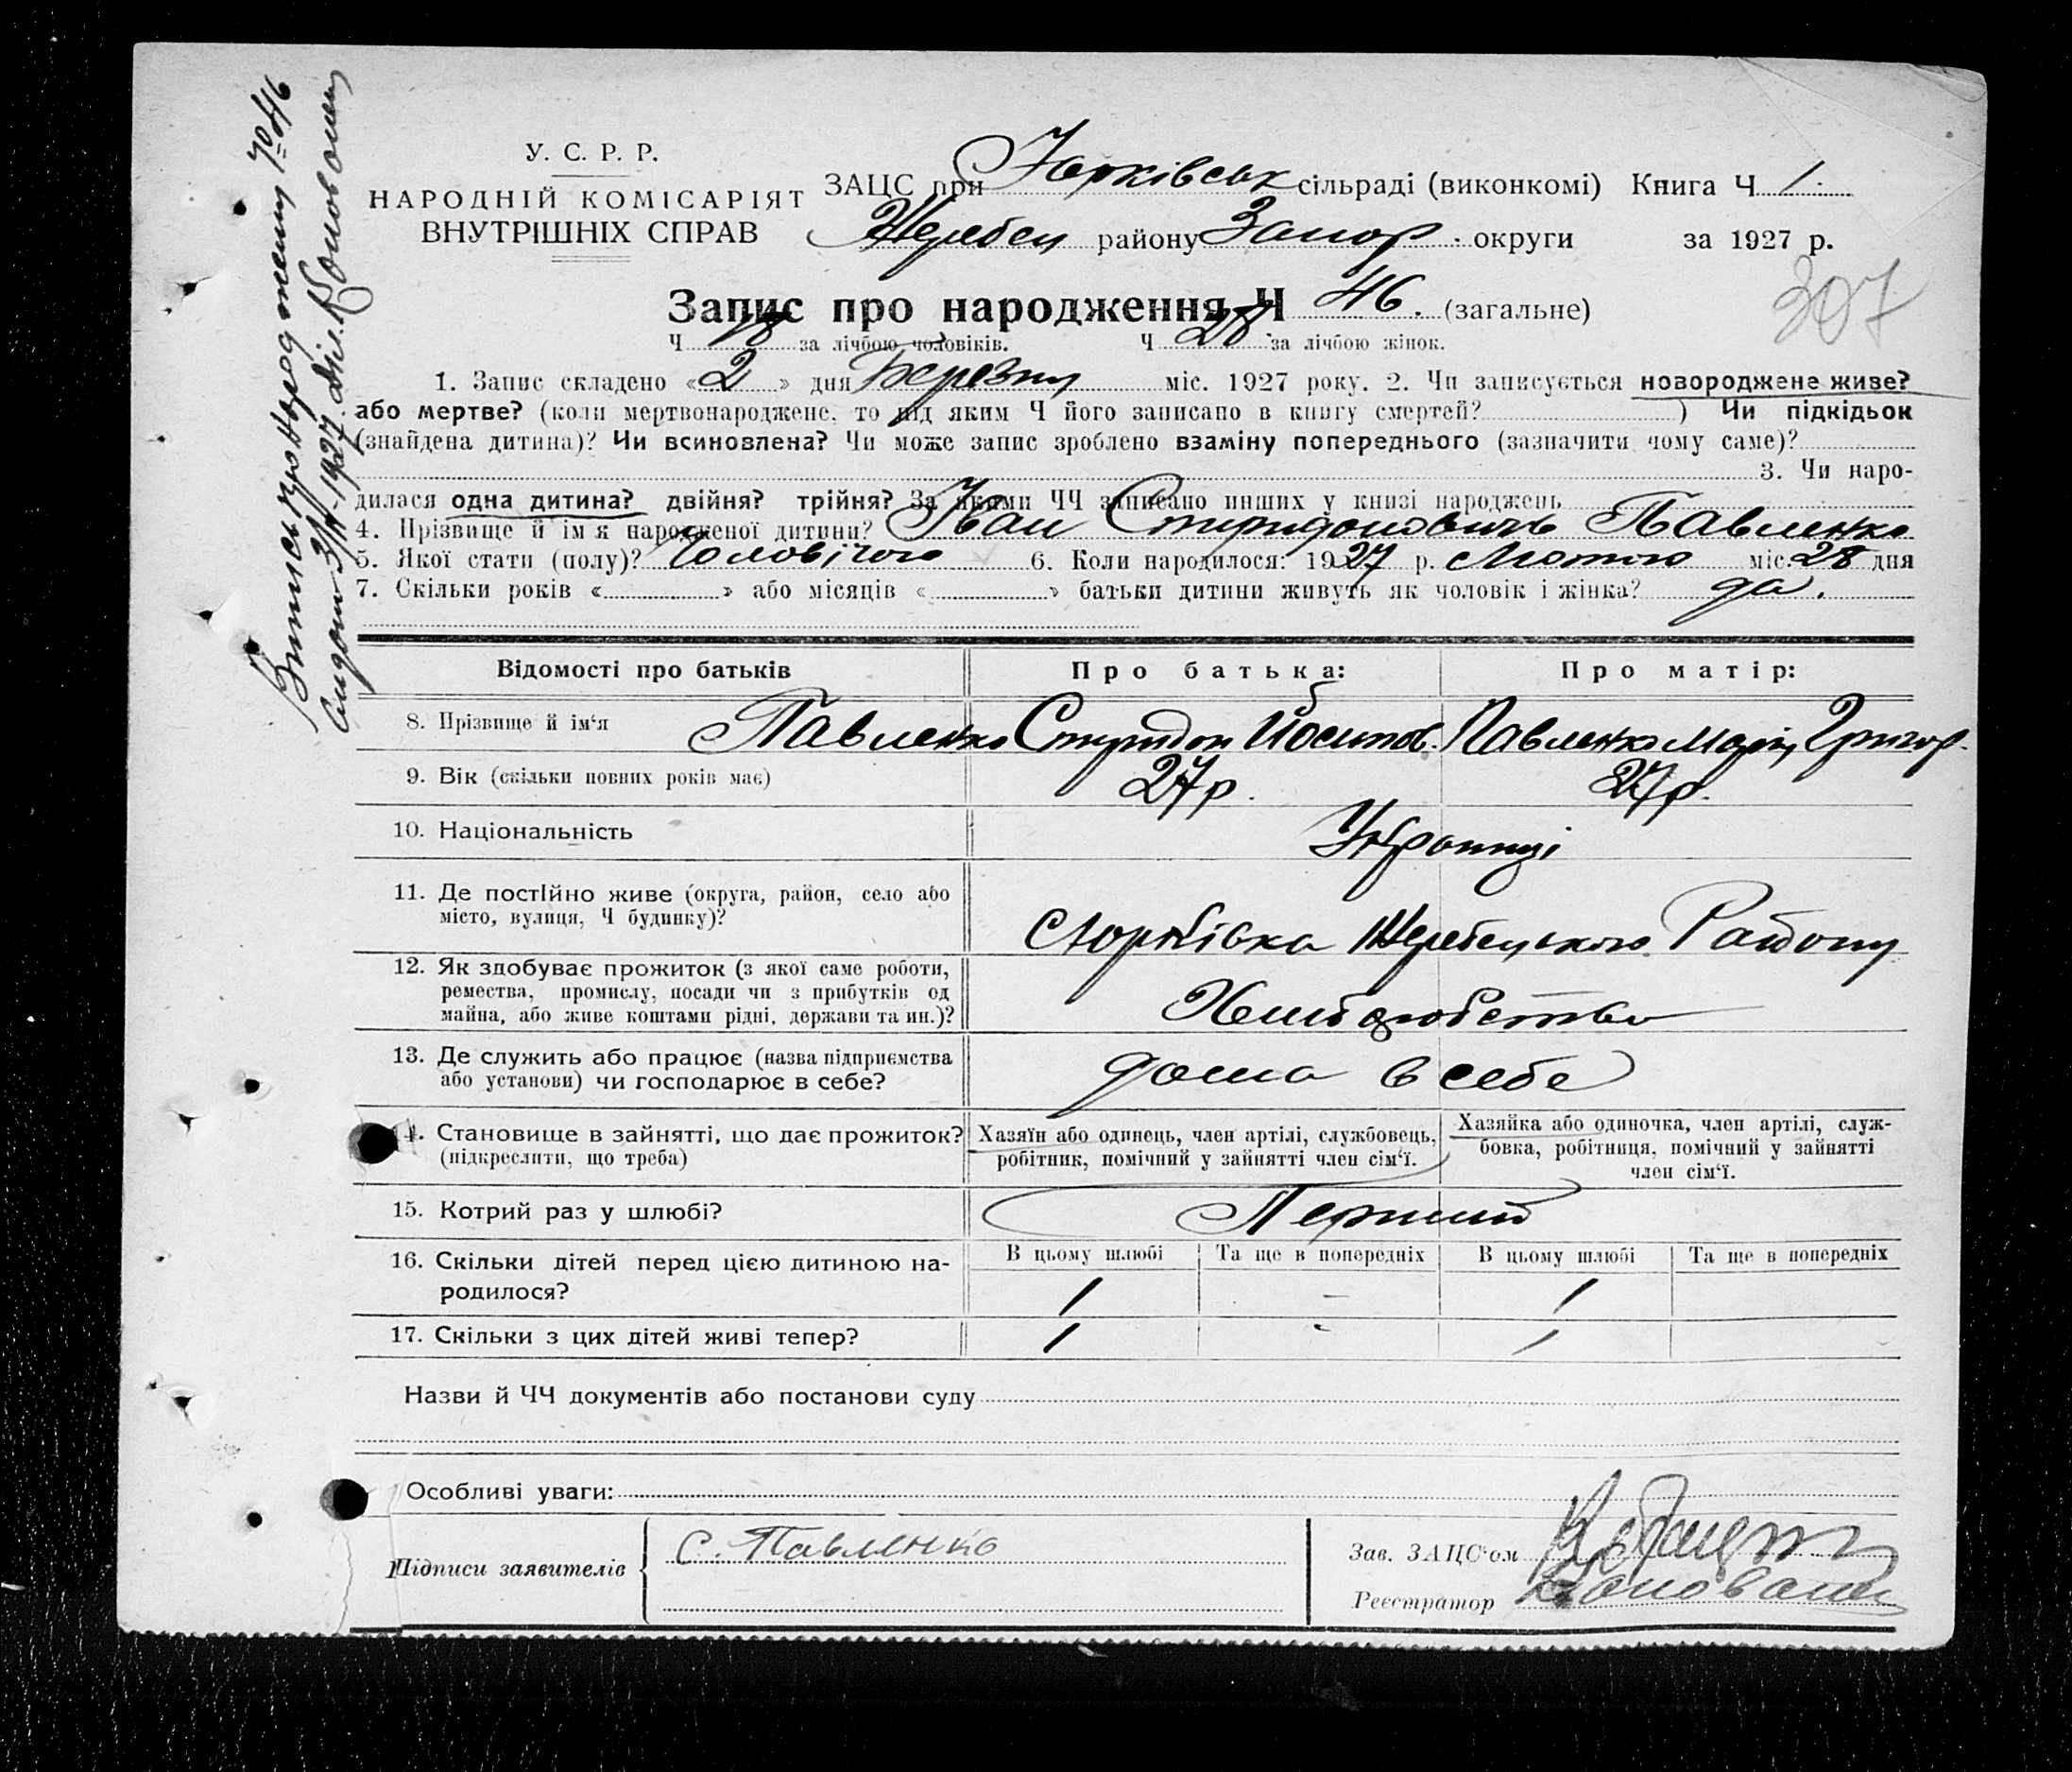 У. С. Р. Р.
НАРОДНІЙ КОМІСАРІЯТ
ВНУТРІШНІХ СПРАВ
ЗАЦС при Юрківськ сільраді (виконкомі) Книга Ч 1.
Жеребец району Запор. округи за 1927 р.
307
Запис про народження Ч 46. (загальне)
Ч 18 за лічбою чоловіків. Ч 28 за лічбою жінок.
1. Запис складено «2» дня Березня міс. 1927 року. 2. Чи записується новороджене живе?
або мертве? (коли мертвонароджене, то під яким Ч його записано в книгу смертей? ) Чи підкідьок
(знайдена дитина)? Чи всиновлена? Чи може запис зроблено взаміну попереднього (зазначити чому саме)?
3. Чи наро-
дилася одна дитина? двійня? трійня? За якими ЧЧ записано инших у книзі народжень
4. Прізвище й ім'я народженої дитини? Іван Спиридоновичь Павленко
5. Якої стати (полу)? Чоловічого 6. Коли народилося: 1927 р. Лютого міс. 28 дня
7. Скільки років « » або місяців « » батьки дитини живуть як чоловік і жінка? да.
Відомості про батьків Про батька: Про матір:
8. Прізвище й ім'я Павленко Спиридон Йосипов. Павленко Марія Григор.
9. Вік (скільки повних років має) 27р. 27р.
10. Національність Українці
11. Де постійно живе (округа, район, село або
місто, вулиця, Ч будинку)?
с Юрківка Жеребецького Району
12. Як здобуває прожиток (з якої саме роботи,
ремества, промислу, посади чи з прибутків од
майна, або живе коштами рідні, держави та ин.)?
Хлиборобство
13. Де служить або працює (назва підприємства
або установи) чи господарює в себе?
дома в себе
14. Становище в зайнятті, що дає прожиток?
(підкреслити, що треба)
Хазяїн або одинець, член артілі, службовець,
робітник, помічний у зайнятті член сім'ї.
Хазяйка або одиночка, член артілі, служ-
бовка, робітниця, помічний у зайнятті
член сім'ї.
15. Котрий раз у шлюбі? Перший
16. Скільки дітей перед цією дитиною на-
родилося?
В цьому шлюбі Та ще в попередніх В цьому шлюбі Та ще в попередніх
1 - 1
17. Скільки з цих дітей живі тепер? 1 - 1
Назви й ЧЧ документів або постанови суду
Особливі уваги:
Підписи заявителів С. Павленко
Зав. ЗАЦС'ом
Реєстратор
Випись про народження № 46
1927